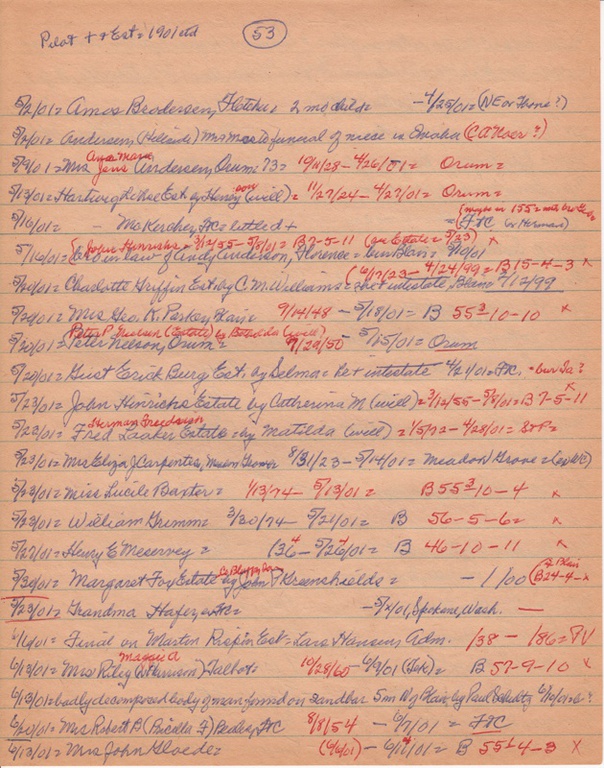 Pilot + + Est = 1901 etd
53
5/2/01 = Amos Brodersen, Fletcher 2 mo. child = - 4/25/01 = (NE or Thone?)
5/2/01 = Andersen, (Helinde) Mr Mrs to funeral of niece in Omaha
5/9/01 = Mrs Jens Andersen, Orum 73 = 10/11/28 - 4/26/01 = Orum =
Ana Maria
5/13/01 = Hartwig DeVoe Est by Henry (will) = 11/27/24 - 4/27/01 = Orum =
son
5/16/01 = - McKercher, FtC = settled +
= (FTC or Herman)
(= John Hinrichs = 3/12/55 - 5/8/01 = B 7-5-11 (see Estate = 5/23) x
5/16/01 = Bro in law of Andy Anderson, Florence = bur Blair = 5/10/01
(6/17/23 - 4/24/99 = B 15-4-3 x
5/20/01 = Charlotte Griffin Est by C.M. Williams = her intestate, Blair 7/12/99
5/20/01 = Mrs Geo. K. Parker, Blair = 9/14/48 - 5/15/01 = B 55 3-10-10 x
Peter P. Nielsen (Estate) by Botilda (will)
5/20/01 = Peter Nelson, Orum = 9/29/50 5/15/01 = Orum
5/20/01 = Gust Erick Burg Est. by Selma = he + intestate 4/21/01 = FtC. = bur Ia?
5/23/01 = John Hinrichs Estate by Catherina M (will) = 3/12/55 - 5/8/01 = B 7-5-11 x
Herman Frederich
5/23/01 = Fred Laaker Estate = by Matilda (will) = 1/5/72 - 4/28/01 = StP =
5/23/01 = Mrs Eliza J Carpenter, Meadow Grove 8/31/23 - 5/14/01 = Meadow Grove =
5/23/01 = Miss Lucile Baxter = 1/13/74 - 5/13/01 = B 55 3-10-4 x
5/23/01 = William Grimm = 3/30/74 - 5/21/01 = B 56-5-6 = x
5/27/01 = Henry E Meservey = (36 4 - 5/26/01 = B 46-10-11 x
5/30/01 = Margaret Foy Estate by John P Greenshields = - 1/00 (B 24-4- x
5/23/01 = Grandma Hafer, ex FtC = - 5/x/01, Spokane, Wash. —
6/16/01 = Final on Martin Rispin Est = Lars Hansen, Adm. 138 - 186 = PV
Maggie A
6/13/01 = Mrs Riley (A Harrison) Talbot = 10/28/65 - 6/9/01 (Tek) = B 57-9-10 x
6/13/01 = badly decomposed body of man found on sandbar 5 mi N of Blair, by Paul Schultz 6/10/01 = b?
6/20/01 = Mrs Robert P. (Priscilla F) Pedley, FtC 8/8/54 - 6/7/01 = FTC
6/13/01 = Mrs John Gloede = (6/6/01) - 6/11/01 = B 55 1-4-3 x